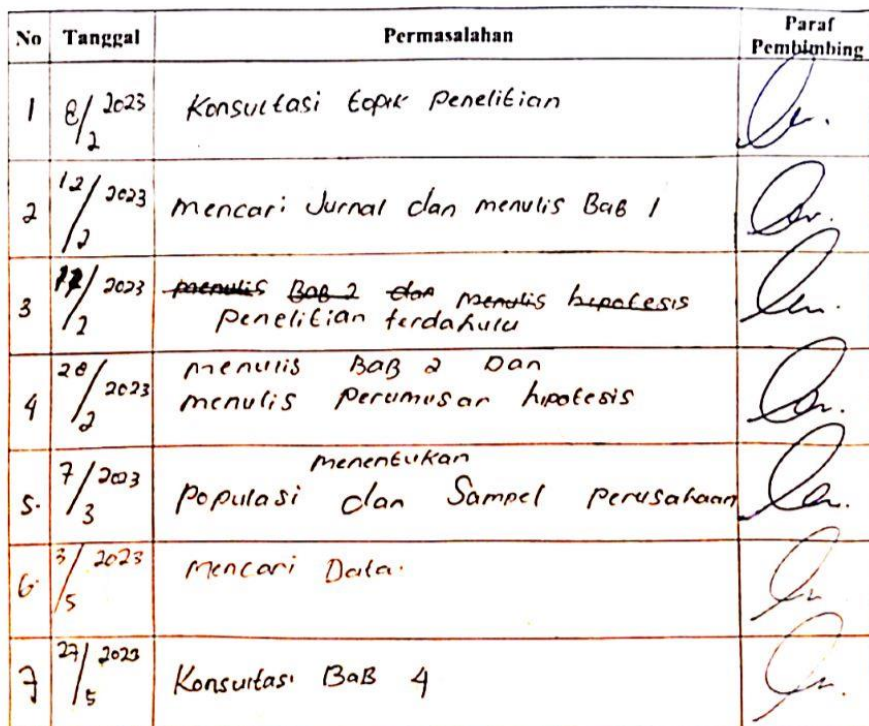 No Tanggal Permasalahan Paraf Pembimbing
1 8/2 2023 Konsultasi topik Penelitian
2 12/2 2023 mencari Jurnal dan menulis Bab 1
3 /2 2023 menulis Bab 2 dan menulis hipotesis
Penelitian terdahulu
4 28/2 2023 menulis BaB 2 Dan
menulis Perumusan hipotesis
menentukan
5. 7/3 2023 Populasi dan Sampel perusahaan
6. 3/5 2023 Mencari Data.
7 27/5 2023 Konsultasi BaB 4